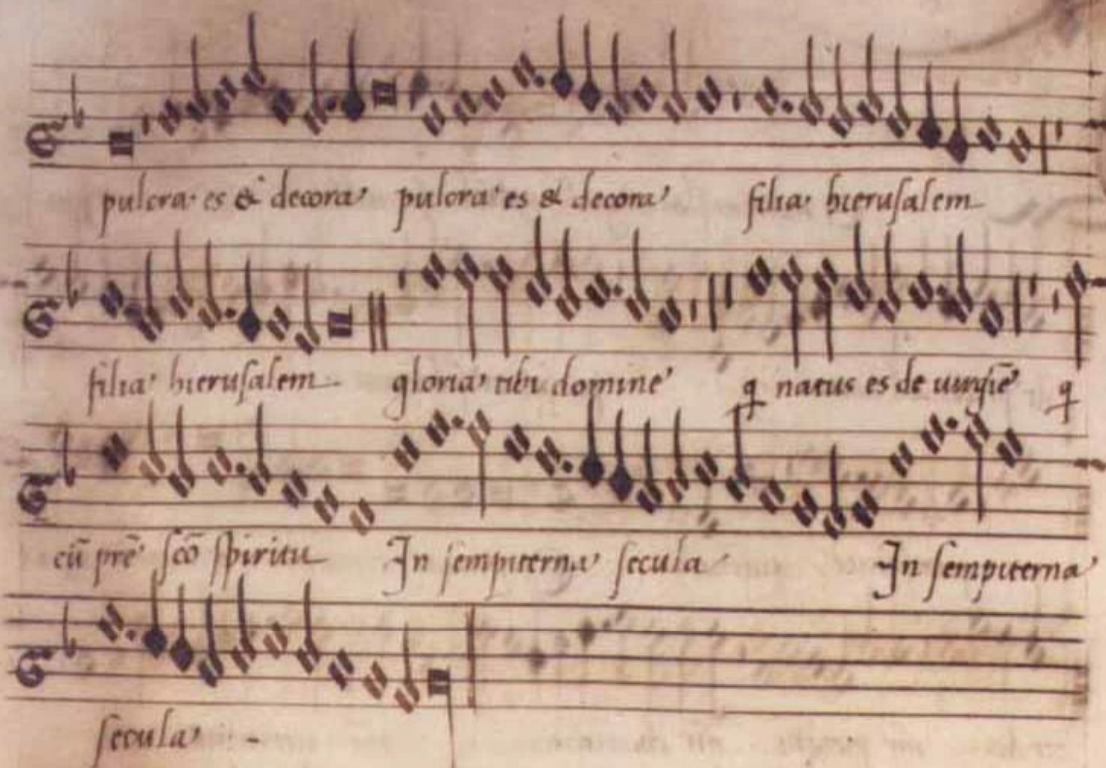 pulcra es & decora pulcra es & decora filia hierusalem
filia hierusalem gloria tibi domine q natus es de uirgiē q
cū prē scō spiritu In sempiterna secula In sempiterna
secula